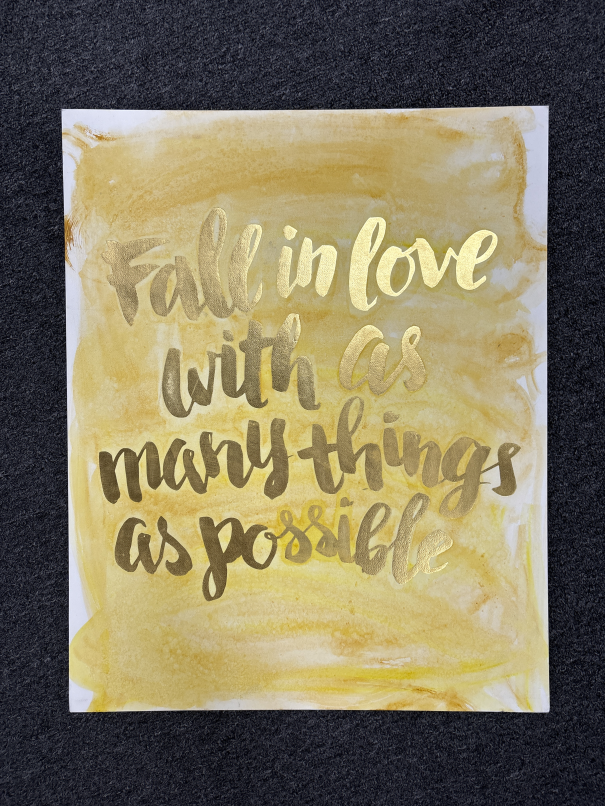 Fall in love
with as
many things
as possible